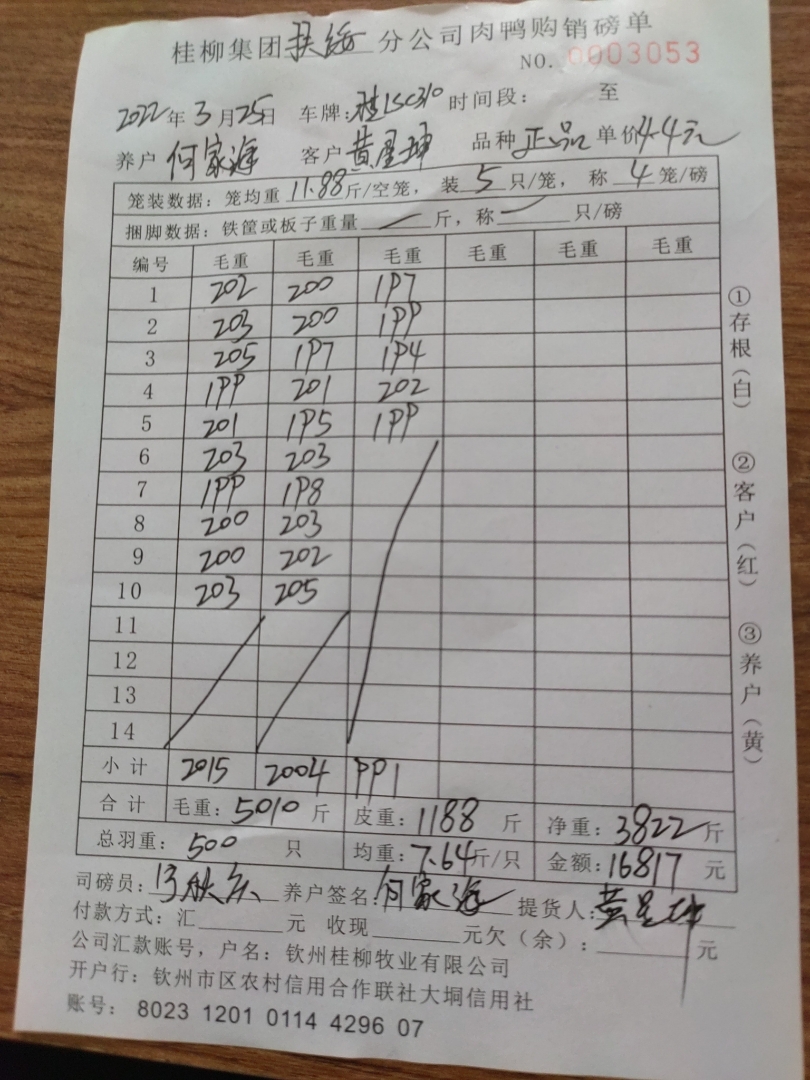 桂柳集团扶绥分公司肉鸭购销磅单
NO. 0003053
2022年3月25日 车牌:桂1SC310 时间段: 至
养户 何家海 客户 黄星坤 品种 正品 单价 4.4元
笼装数据:笼均重 11.88 斤/空笼, 装 5 只/笼, 称 4 笼/磅
捆脚数据:铁筐或板子重量 — 斤,称 — 只/磅
编号 毛重 毛重 毛重 毛重 毛重 毛重
1 202 200 197
2 203 200 199
3 205 197 194
4 199 201 202
5 201 195 199
6 203 203
7 199 198
8 200 203
9 200 202
10 203 205
11
12
13
14
小计 2015 2004 991
合计 毛重:5010 斤 皮重:1188 斤 净重:3822 斤
总羽重:500 只 均重:7.64斤/只 金额:16817 元
司磅员: 养户签名:何家海 提货人:黄星坤
付款方式:汇 元 收现 元欠(余): 元
公司汇款账号,户名:钦州桂柳牧业有限公司
开户行:钦州市区农村信用合作联社大垌信用社
账号: 8023 1201 0114 4296 07
①存根(白)
②客户(红)
③养户(黄)